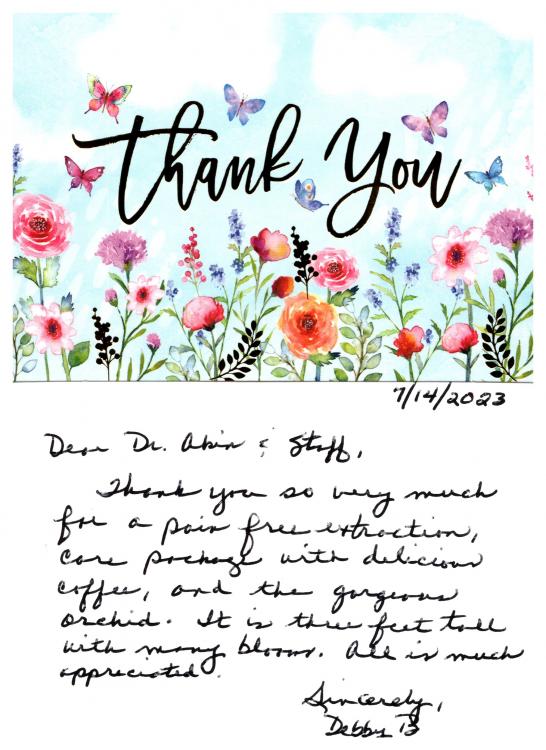 Thank You
7/14/2023
Dear Dr. Akin & Staff,
Thank you so very much
for a pain free extraction,
care package with delicious
coffee, and the gorgeous
orchid. It is three feet tall
with many blooms. All is much
appreciated.
Sincerely,
Debby B